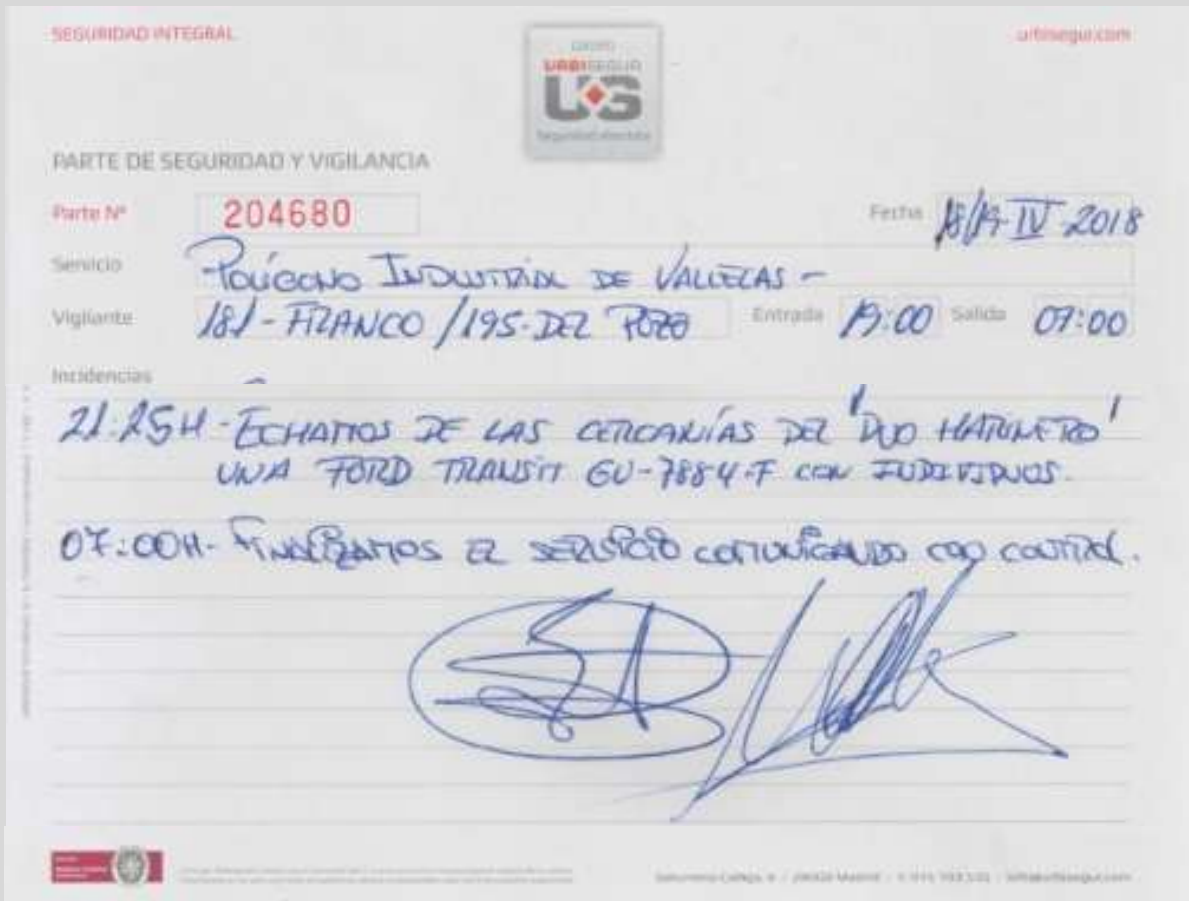 SEGURIDAD INTEGRAL
urbisegur.com
GRUPO
URBISEGUR
UG
Seguridad
PARTE DE SEGURIDAD Y VIGILANCIA
Parte Nº 204680
Fecha 18/19-IV-2018
Servicio -POLÍGONO INDUSTRIAL DE VALLECAS-
Vigilante 181-FRANCO/195-DEL POZO Entrada 19:00 Salida 07:00
Incidencias
21:25H-ECHAMOS DE LAS CERCANÍAS DEL "DUO HARINERO"
UNA FORD TRANSIT GU-7884-F CON INDIVIDUOS.
07:00H-FINALIZAMOS EL SERVICIO COMUNICANDO CON CONTROL.